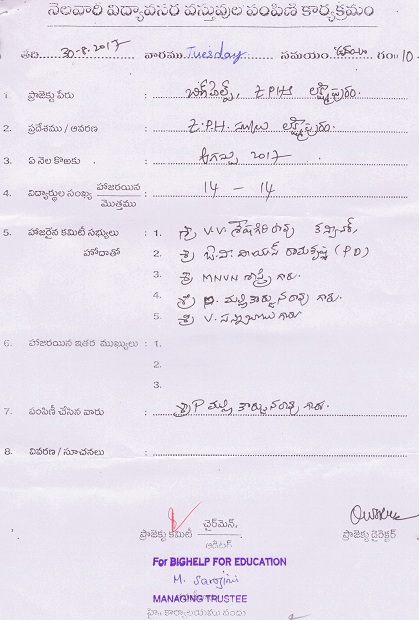 నెలవారి విద్యావసర వస్తువుల పంపిణి కార్యక్రమం
తేది 30-8-2017 వారము Tuesday సమయం ఉదయం గం॥ 10-
1. ప్రాజెక్టు పేరు : బిగ్ హెల్ప్, Z.P.H.S లక్ష్మీపురం.
2. ప్రదేశము / ఆవరణ : Z.P.H. స్కూలు లక్ష్మీపురం.
3. ఏ నెల కొఱకు : ఆగష్టు 2017
4. విద్యార్థుల సంఖ్య హాజరయిన మొత్తము : 14 - 14
5. హాజరైన కమిటీ సభ్యులు హోదాతో : 1. శ్రీ V.V. శేషగిరి రావు
2. శ్రీ రామకృష్ణ (PD)
3. శ్రీ MNVN శాస్త్రి గారు.
4. శ్రీ P. మల్లి కార్జున రావు గారు.
5. శ్రీ V. సన్నిబాబు గారు
6. హాజరయిన ఇతర ముఖ్యులు : 1.
2.
3.
7. పంపిణీ చేసిన వారు : శ్రీ P మల్లి కార్జున రావు గారు.
8. వివరణ / సూచనలు :
ప్రాజెక్టు కమిటీ చైర్‌మెన్, ఆడిటర్
ప్రాజెక్టు డైరెక్టర్
For BIGHELP FOR EDUCATION
M. Sarojini
MANAGING TRUSTEE
హై: కార్యాలయము నందు